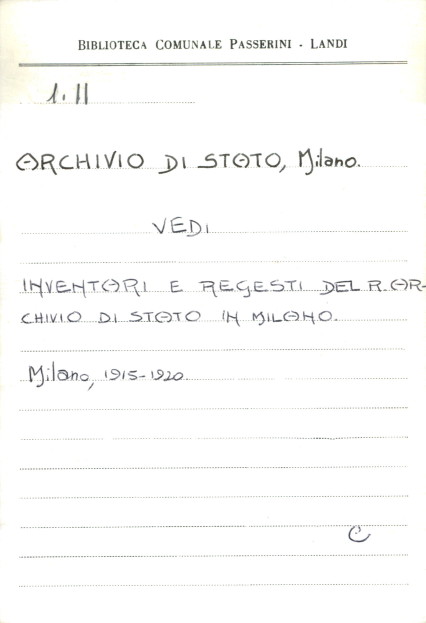 BIBLIOTECA COMUNALE PASSERINI - LANDI
1.11
ARCHIVIO DI STATO, Milano.
VEDI
INVENTARI E REGESTI DEL R. AR-
CHIVIO DI STATO IN MILANO.
Milano, 1915-1920.
C